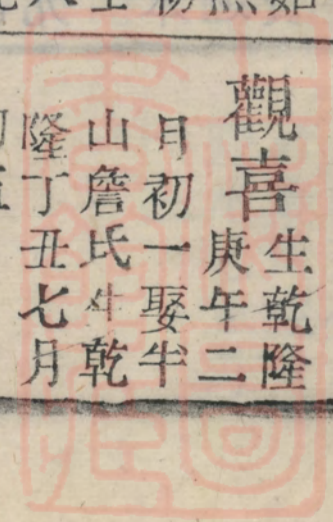 觀喜
生乾隆
庚午二
日初一娶半
山詹氏生乾
隆丁丑七月